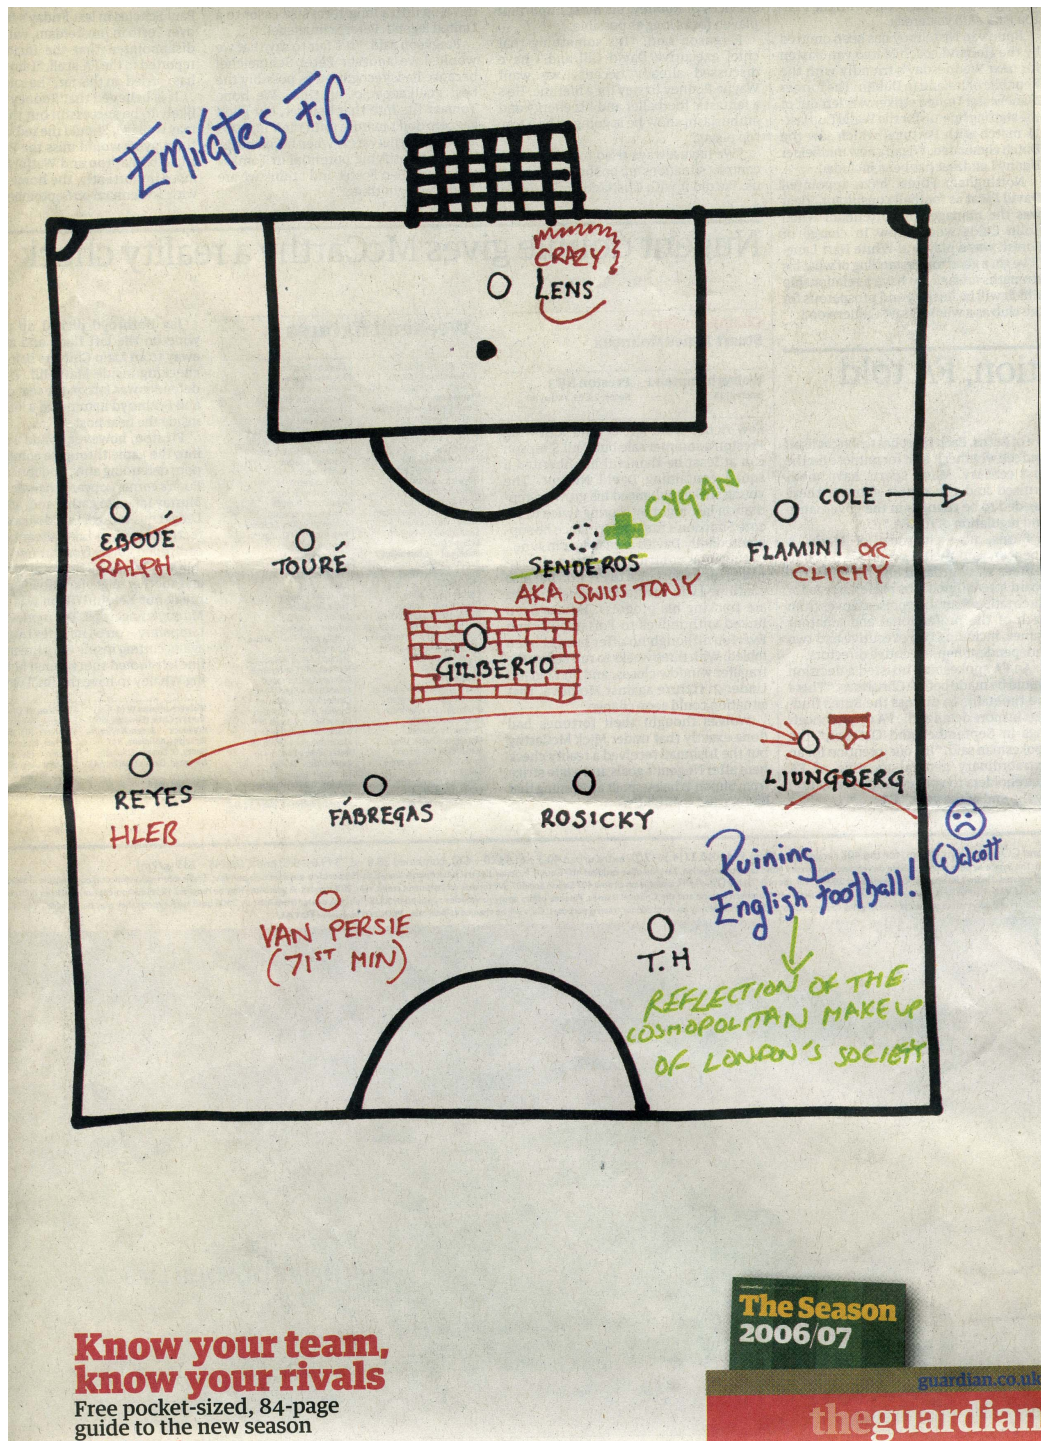 Emirates F.C
CRAZY
LENS
CYGAN
COLE
EBOUÉ
RALPH
TOURÉ
SENDEROS
AKA SWISS TONY
FLAMINI OR
CLICHY
GILBERTO
REYES
HLEB
FÁBREGAS
ROSICKY
LJUNGBERG
Walcott
Ruining
English football!
VAN PERSIE
(71ST MIN)
T.H
REFLECTION OF THE
COSMOPOLITAN MAKE UP
OF LONDON'S SOCIETY
Know your team,
know your rivals
Free pocket-sized, 84-page
guide to the new season
The Season
2006/07
guardian.co.uk
theguardian